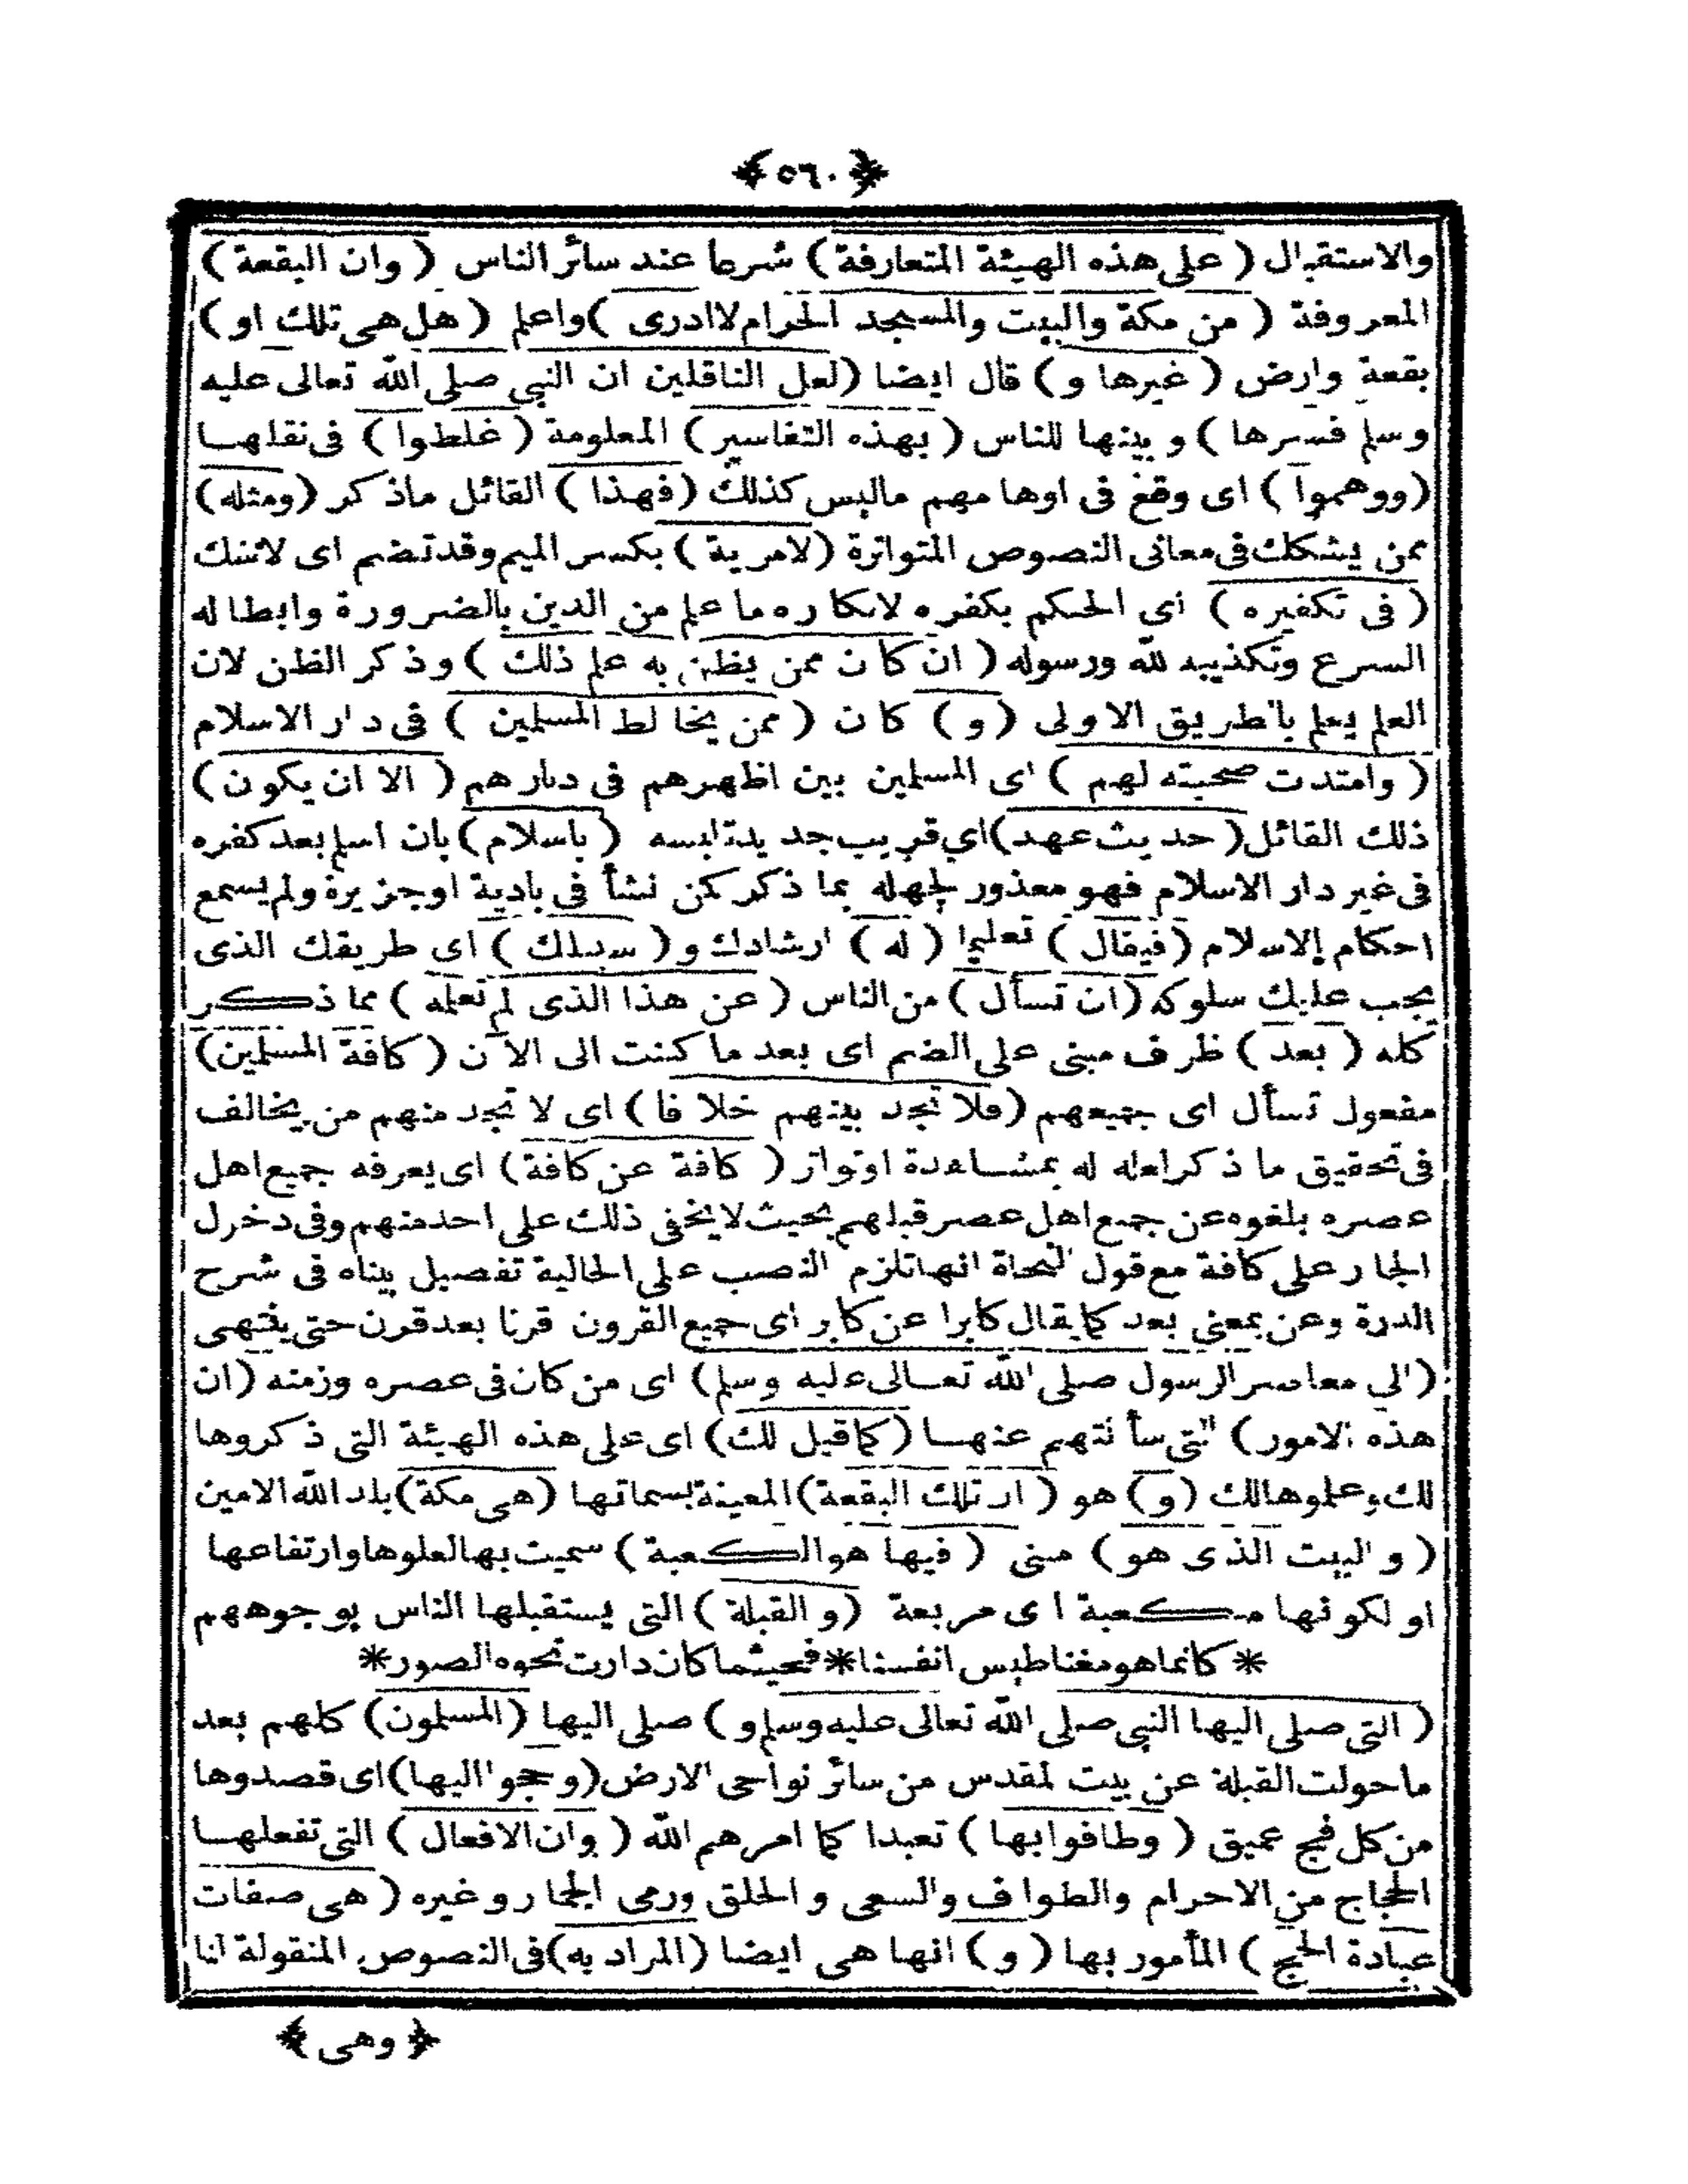 ﴿٥٦٠﴾
والاستقبال ( على هذه الهيئة المتعارفة ) شرعا عند سائر الناس ( وان البقعة )
المعروفة ( من مكة والبيت والمسجد الحرام لاادرى ) واعلم ( هل هى تلك او )
بقعة وارض ( غيرها و ) قال ايضا ( لعل الناقلين ان النبي صلى الله تعالى عليه
وسلم فسرها ) وبينها للناس ( بهذه التفاسير ) المعلومة ( غلطوا ) فى نقلها
( ووهموا ) اى وقع فى اوهامهم ماليس كذلك ( فهذا ) القائل ماذكر ( ومثله )
ممن يشكك فى معانى النصوص المتواترة ( لامرية ) بكسر الميم وقد تضم اى لاشك
( فى تكفيره ) اى الحكم بكفره لانكاره ما علم من الدين بالضرورة وابطاله
الشرع وتكذيبه لله ورسوله ( ان كان ممن يظن به علم ذلك ) وذكر الظن لان
العلم يعلم بالطريق الاولى ( و ) كان ( ممن يخالط المسلمين ) فى دار الاسلام
( وامتدت صحبته لهم ) اى المسلمين بين اظهرهم فى ديارهم ( الا ان يكون )
ذلك القائل ( حديث عهد ) اي قريب جديد تلبسه ( باسلام ) بان اسلم بعد كفره
فى غير دار الاسلام فهو معذور لجهله بما ذكر كمن نشأ فى بادية اوجزيرة ولم يسمع
احكام الاسلام ( فيقال ) تعليما ( له ) ارشادك و ( سبيلك ) اى طريقك الذى
يجب عليك سلوكه ( ان تسأل ) من الناس ( عن هذا الذى لم تعلمه ) مما ذكر
كله ( بعد ) ظرف مبنى على الضم اى بعد ما كنت الى الآن ( كافة المسلمين )
مفعول تسأل اى جميعهم ( فلا تجد بينهم خلافا ) اى لا تجد منهم من يخالف
فى تحقيق ما ذكر لعلمه له بمشاهدة اوتواتر ( كافة عن كافة ) اى يعرفه جميع اهل
عصره بلغوه عن جميع اهل عصر قبلهم بحيث لا يخفى ذلك على احد منهم وفى دخول
الجار على كافة مع قول النحاة انها تلزم النصب على الحالية تفصيل بيناه فى شرح
الدرة وعن بمعنى بعد كما يقال كابرا عن كابر اى جميع القرون قرنا بعد قرن حتى ينتهى
( الي معاصر الرسول صلى الله تعالى عليه وسلم ) اى من كان فى عصره وزمنه ( ان
هذه الامور ) التى سألتهم عنها ( كما قيل لك ) اى على هذه الهيئة التى ذكروها
لك وعلموها لك ( و ) هو ( ان تلك البقعة ) المعينة بسماتها ( هى مكة ) بلد الله الامين
( والبيت الذى هو ) مبنى ( فيها هو الكعبة ) سميت بها لعلوها وارتفاعها
او لكونها مكعبة اى مربعة ( و القبلة ) التى يستقبلها الناس بوجوههم
* كانما هو مغناطيس انفسنا * فحيثما كان دارت نحوه الصور *
( التى صلى اليها النبى صلى الله تعالى عليه وسلم و ) صلى اليها ( المسلمون ) كلهم بعد
ما حولت القبلة عن بيت المقدس من سائر نواحى الارض ( وحجوا اليها ) اى قصدوها
من كل فج عميق ( وطافوا بها ) تعبدا كما امرهم الله ( وان الافعال ) التى تفعلها
الحجاج من الاحرام والطواف والسعى و الحلق ورمى الجمار وغيره ( هى صفات
عبادة الحج ) المأمور بها ( و ) انها هى ايضا ( المراد به ) فى النصوص المنقولة لنا
﴿ وهى ﴾